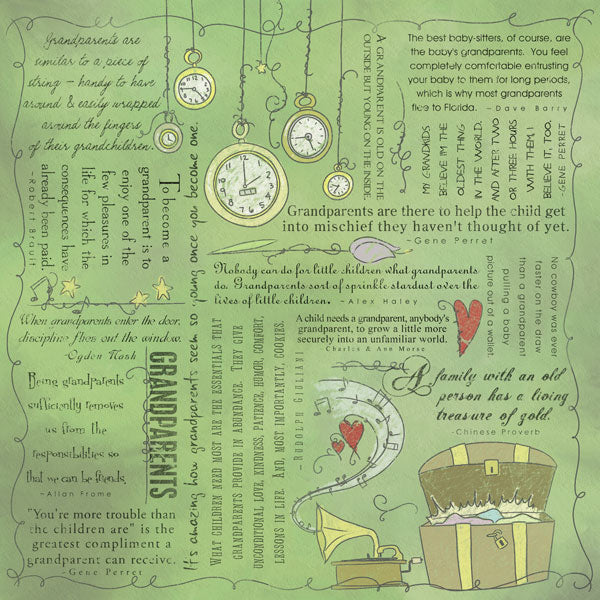 Grandparents are
similar to a piece of
string - handy to have
around & easily wrapped
around the fingers
of their grandchildren.
A GRANDPARENT IS OLD ON THE
OUTSIDE BUT YOUNG ON THE INSIDE.
The best baby-sitters, of course, are
the baby's grandparents. You feel
completely comfortable entrusting
your baby to them for long periods,
which is why most grandparents
flee to Florida. ~Dave Barry
MY GRANDKIDS
BELIEVE I'M THE
OLDEST THING
IN THE WORLD.
AND AFTER TWO
OR THREE HOURS
WITH THEM, I
BELIEVE IT, TOO.
~GENE PERRET
To become a
grandparent is to
enjoy one of the
few pleasures in
life for which the
consequences have
already been paid.
~Robert Brault
It's amazing how grandparents seem so young once you become one.
Grandparents are there to help the child get
into mischief they haven't thought of yet.
~Gene Perret
Nobody can do for little children what grandparents
do. Grandparents sort of sprinkle stardust over the
lives of little children. ~Alex Haley
No cowboy was ever
faster on the draw
than a grandparent
pulling a baby
picture out of a wallet.
When grandparents enter the door,
discipline flies out the window.
~Ogden Nash
A child needs a grandparent, anybody's
grandparent, to grow a little more
securely into an unfamiliar world.
~Charles & Ann Morse
GRANDPARENTS
WHAT CHILDREN NEED MOST ARE THE ESSENTIALS THAT
GRANDPARENTS PROVIDE IN ABUNDANCE. THEY GIVE
UNCONDITIONAL LOVE, KINDNESS, PATIENCE, HUMOR, COMFORT,
LESSONS IN LIFE. AND, MOST IMPORTANTLY, COOKIES.
~RUDOLPH GIULIANI
A family with an old
person has a living
treasure of gold.
~Chinese Proverb
Being grandparents
sufficiently removes
us from the
responsibilities so
that we can be friends.
~Allan Frome
"You're more trouble than
the children are" is the
greatest compliment a
grandparent can receive.
~Gene Perret